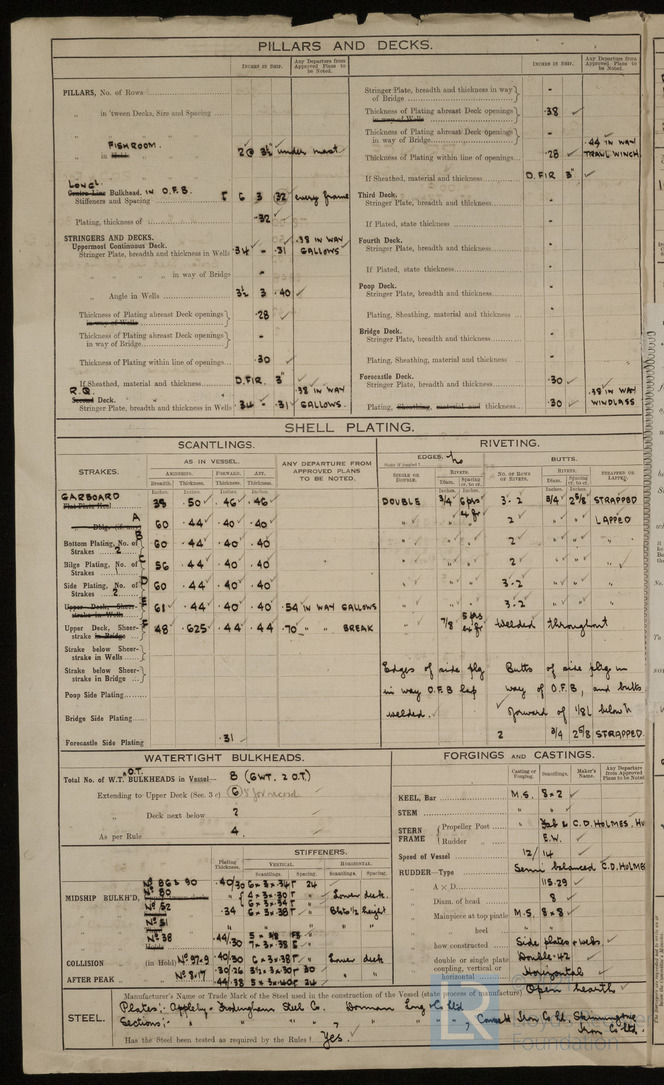 PILLARS AND DECKS.
INCHES IN SHIP.
Any Departure from Approved Plans to be Noted.
PILLARS, No. of Rows
„ in 'tween Decks, Size and Spacing
„ „
FISHROOM.
„ in Hold.
2 @ 3½ under mast
LONGL.
Centre Line Bulkhead. IN O.F.B.
Stiffeners and Spacing 6 3 32 every frame
Plating, thickness of .32
STRINGERS AND DECKS.
Uppermost Continuous Deck.
Stringer Plate, breadth and thickness in Wells 34 - .31 .38 IN WAY GALLOWS
„ „ in way of Bridge -
„ Angle in Wells 3½ 3 .40
Thickness of Plating abreast Deck openings in way of Wells .28
Thickness of Plating abreast Deck openings in way of Bridge -
Thickness of Plating within line of openings .30
If Sheathed, material and thickness O.FIR. 3"
R.Q.
Second Deck.
Stringer Plate, breadth and thickness in Wells 34 - .31 .38 IN WAY GALLOWS.
INCHES IN SHIP.
Any Departure from Approved Plans to be Noted.
Stringer Plate, breadth and thickness in way of Bridge -
Thickness of Plating abreast Deck openings in way of Wells .38
Thickness of Plating abreast Deck openings in way of Bridge -
Thickness of Plating within line of openings .28 .44 IN WAY TRAWL WINCH.
If Sheathed, material and thickness O.FIR 3"
Third Deck.
Stringer Plate, breadth and thickness -
If Plated, state thickness -
Fourth Deck.
Stringer Plate, breadth and thickness -
If Plated, state thickness -
Poop Deck.
Stringer Plate, breadth and thickness -
Plating, Sheathing, material and thickness -
Bridge Deck.
Stringer Plate, breadth and thickness -
Plating, Sheathing, material and thickness -
Forecastle Deck.
Stringer Plate, breadth and thickness .30
Plating, Sheathing, material and thickness .30 .38 IN WAY WINDLASS
SHELL PLATING.
SCANTLINGS.
RIVETING.
STRAKES.
AS IN VESSEL.
ANY DEPARTURE FROM APPROVED PLANS TO BE NOTED.
EDGES.
BUTTS.
AMIDSHIPS. FORWARD. AFT.
Breadth. Thickness. Thickness. Thickness.
SINGLE OR DOUBLE.
RIVETS.
Diam. Spacing cr. to cr.
NO. OF ROWS OF RIVETS.
RIVETS.
Diam. Spacing cr. to cr.
STRAPPED OR LAPPED.
GARBOARD
Flat Plate Keel 39 .50 .46 .46 DOUBLE 3/4 3.2 3/4 2 5/8 STRAPPED
A
60 .44 .40 .40 „ „ „ 2 „ „ LAPPED
Bottom Plating, No. of Strakes 2 B 60 .44 .40 .40 „ „ „ 2 „ „ „
Bilge Plating, No. of Strakes 1 C 56 .44 .40 .40 „ „ „ 2 „ „ „
Side Plating, No. of Strakes 2 D 60 .44 .40 .40 „ „ „ 3.2 „ „ „
Upper Deck, Sheer-strake in Wells E 61 .44 .40 .40 .54 IN WAY GALLOWS „ „ „ 3.2 „ „ „
Upper Deck, Sheer-strake in Bridge F 48 .625 .44 .44 .70 „ „ BREAK „ 7/8 Welded throughout
Strake below Sheer-strake in Wells
Strake below Sheer-strake in Bridge
Poop Side Plating
Bridge Side Plating
Forecastle Side Plating .31
Edges of side pltg
in way O.F.B lap
welded.
Butts of side pltg in
way of O.F.B, and butts
forward of 1/8 L below
2 3/4 2 5/8 STRAPPED.
WATERTIGHT BULKHEADS.
Total No. of W.T. & O.T. BULKHEADS in Vessel— 8 (6WT. 2 O.T)
Extending to Upper Deck (Sec. 3 c) 6
„ Deck next below 2
As per Rule 4.
STIFFENERS.
Plating Thickness.
VERTICAL. HORIZONTAL.
Scantlings. Spacing. Scantlings. Spacing.
MIDSHIP BULKH'D,
No 86 & 90 .40/.30 6 x 3 x .34 24
No 80 4 x 3 x .30 „ Lower deck.
No 52 .34 6 x 3 x .38 „ height
No 51
No 38 .44/.30 7 x 3 x .38 „
COLLISION (in Hold) No 97-9 .40/.30 6 x 3 x .38 „ Lower deck
AFTER PEAK „ No 8-17 .30/.26 3½ x 3 x .30 30
.44/.38 5 x 3 x .40 24
FORGINGS AND CASTINGS.
Casting or Forging. Scantlings. Maker's Name. Any Departure from Approved Plans to be Noted.
KEEL, Bar M.S. 8 x 2
STEM „ „
STERN FRAME { Propeller Post „ C.D. HOLMES. Hu
Rudder „ E.W.
Speed of Vessel 12/14
RUDDER—Type Semi balanced C.D. HOLMES
„ A × D 115.29
„ Diam. of head 8
„ Mainpiece at top pintle M.S. 8 x 8
„ „ heel „ „
„ how constructed Side plates & webs.
„ double or single plate Double .42
„ coupling, vertical or horizontal Horizontal
STEEL.
Manufacturer's Name or Trade Mark of the Steel used in the construction of the Vessel (state process of manufacture) Open hearth
Plates: Appleby-Frodingham Steel Co. Dorman Long & Co Ltd
Sections: „ „ „ , Consett Iron Co Ld. Skinningrove Iron Co Ltd.
Has the Steel been tested as required by the Rules? Yes.
LR
Foundation